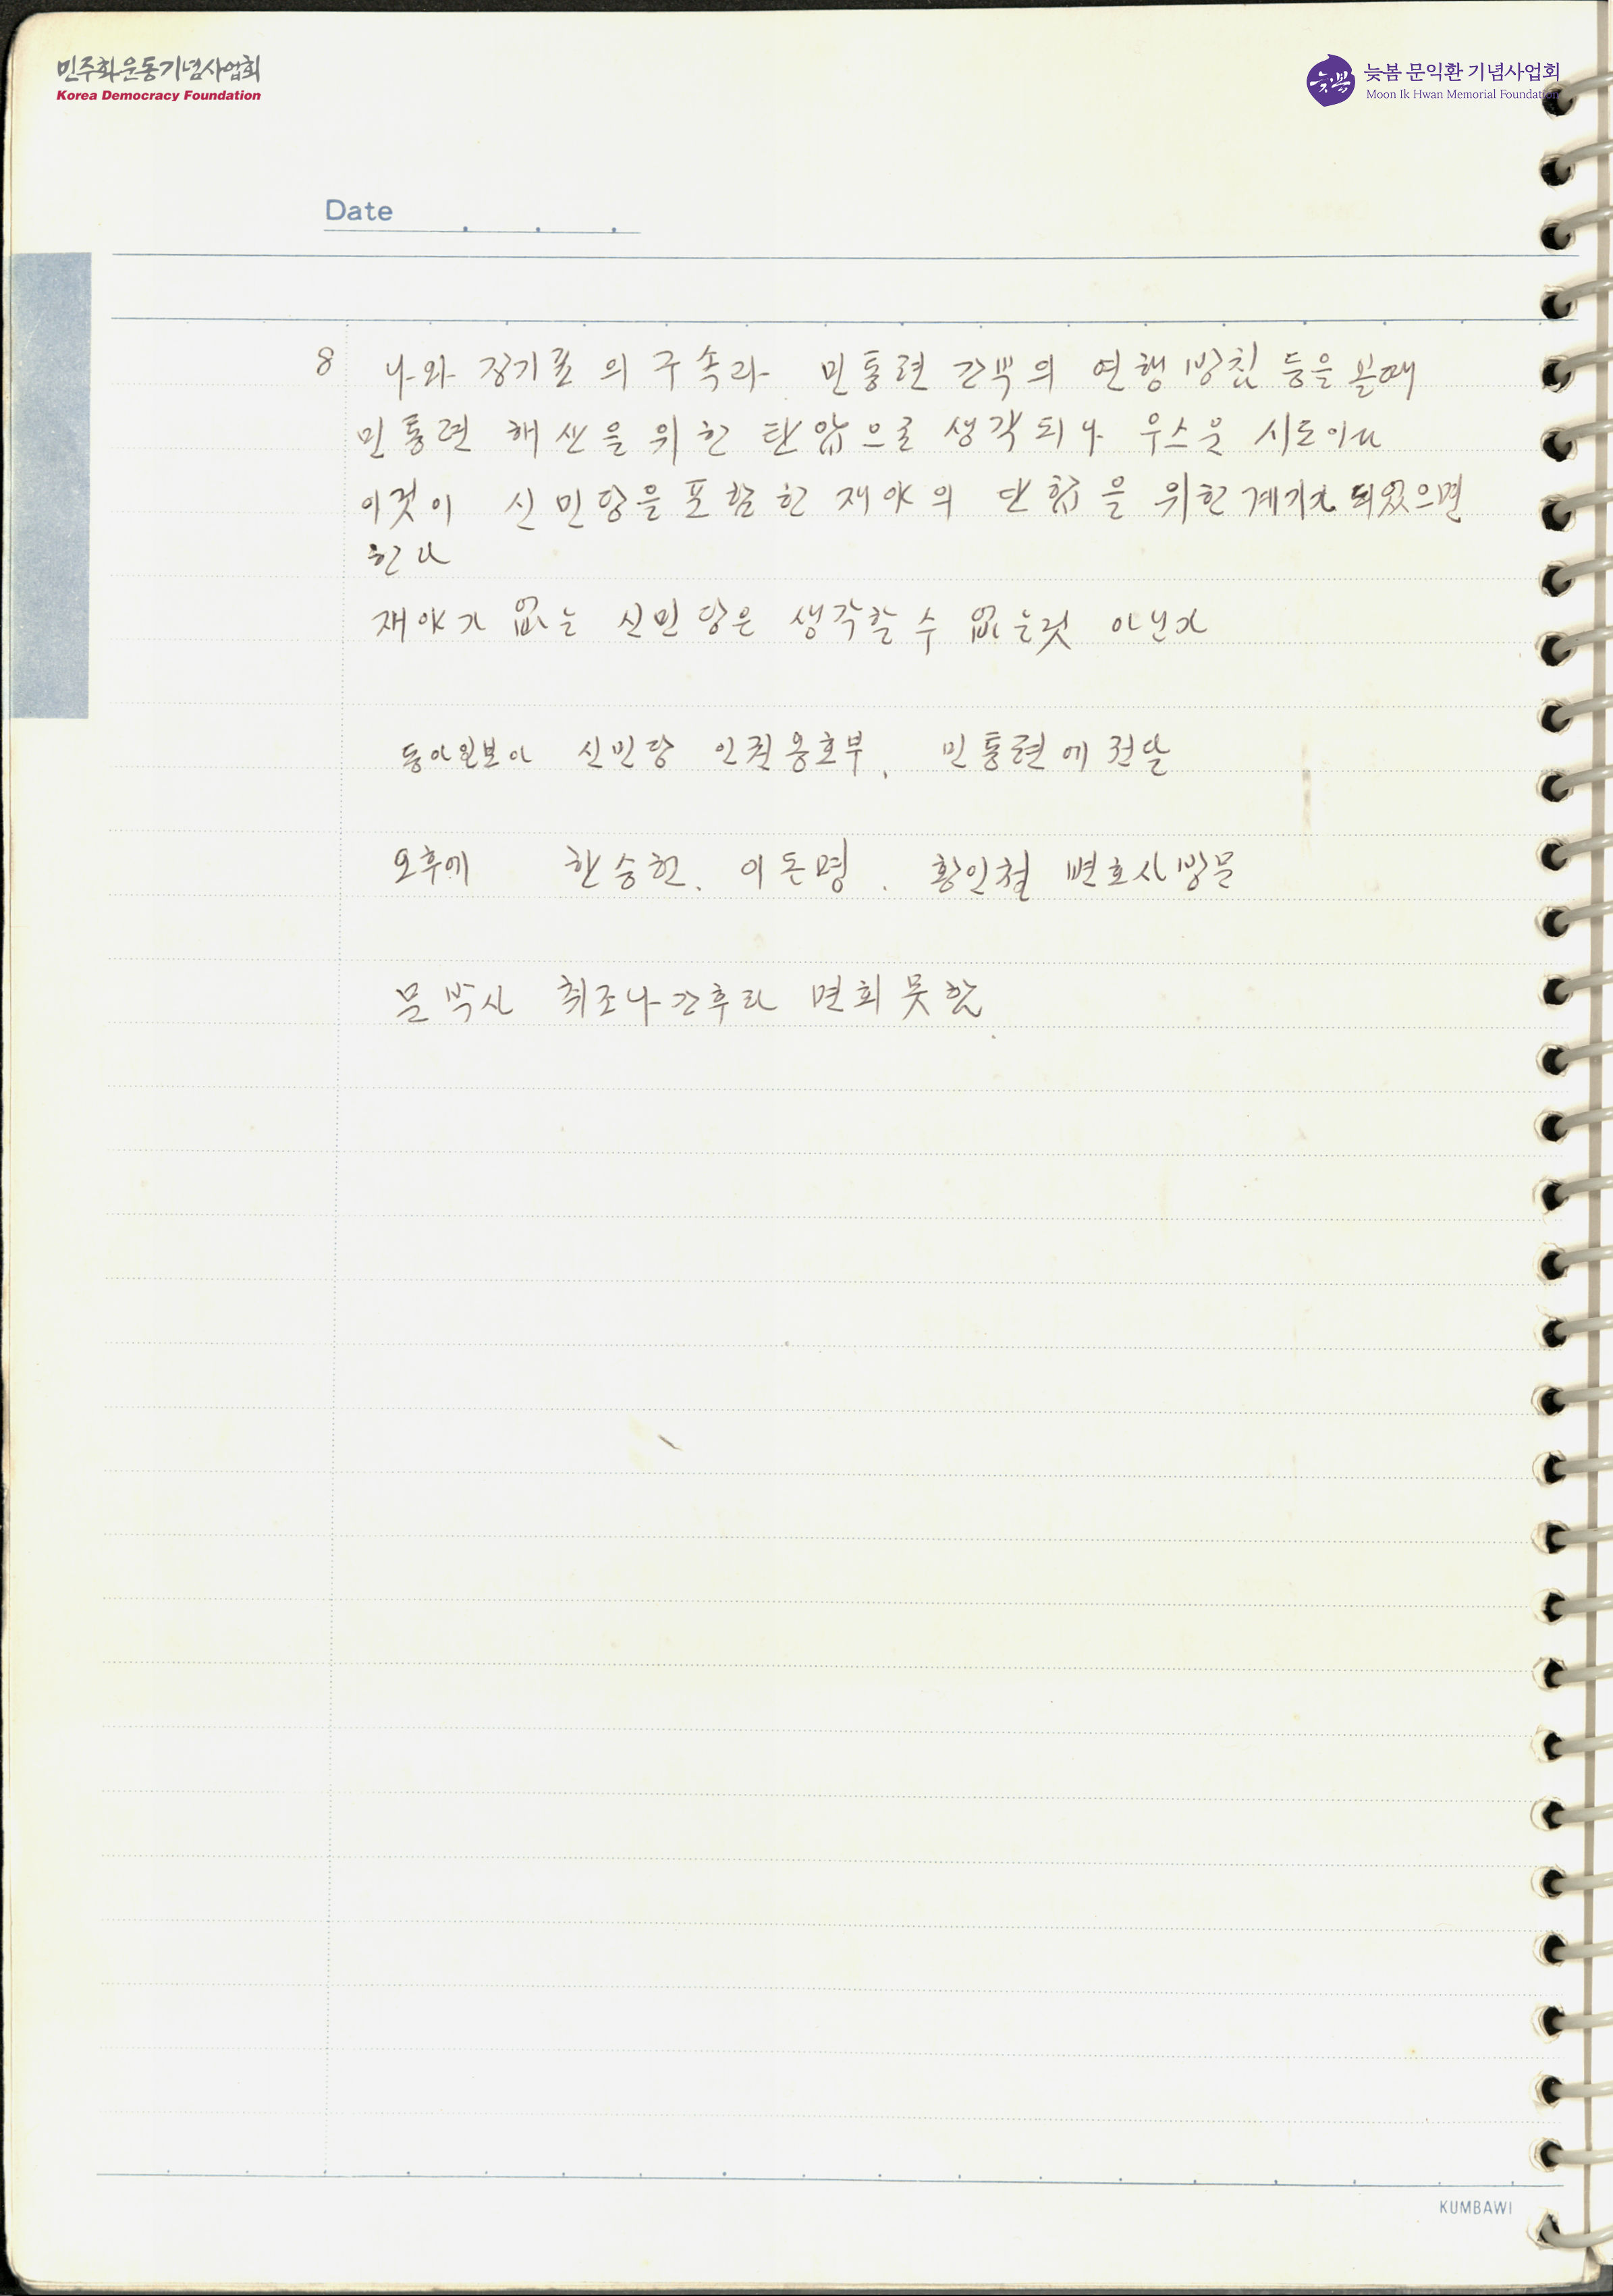 민주화운동기념사업회
Korea Democracy Foundation
늦봄 문익환 기념사업회
Moon Ik Hwan Memorial Foundation
Date
8 나와 장기표의 구속과 민통련 간부의 연행 방침 등을 볼때
민통련 해산을 위한 탄압으로 생각되나 우스운 시도이다
이것이 신민당을 포함한 재야의 단합을 위한 계기가 되었으면
한다
재야가 없는 신민당은 생각할 수 없는것 아닌가
동아일보 신민당 인권옹호부, 민통련에 전달
오후에 한승헌, 이돈명, 황인철 변호사 방문
문박사 취조나간후라 면회 못함.
KUMBAWI